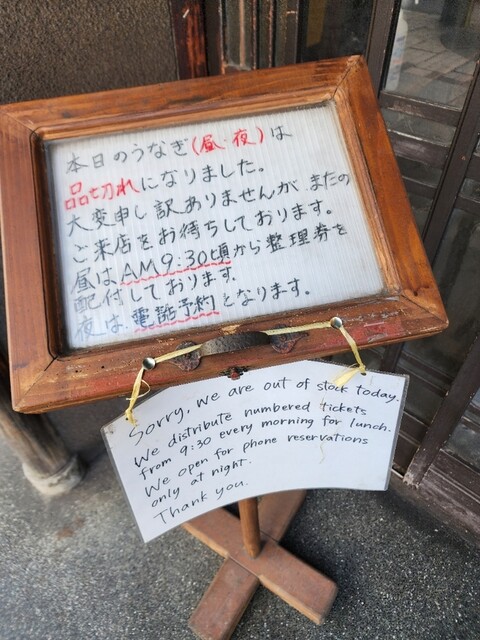 本日のうなぎ(昼・夜)は
品切れになりました。
大変申し訳ありませんが、またの
ご来店をお待ちしております。
昼はAM9:30頃から整理券を
配付しております。
夜は、電話予約となります。
Sorry, we are out of stock today.
We distribute numbered tickets
from 9:30 every morning for lunch.
We open for phone reservations
only at night.
Thank you.